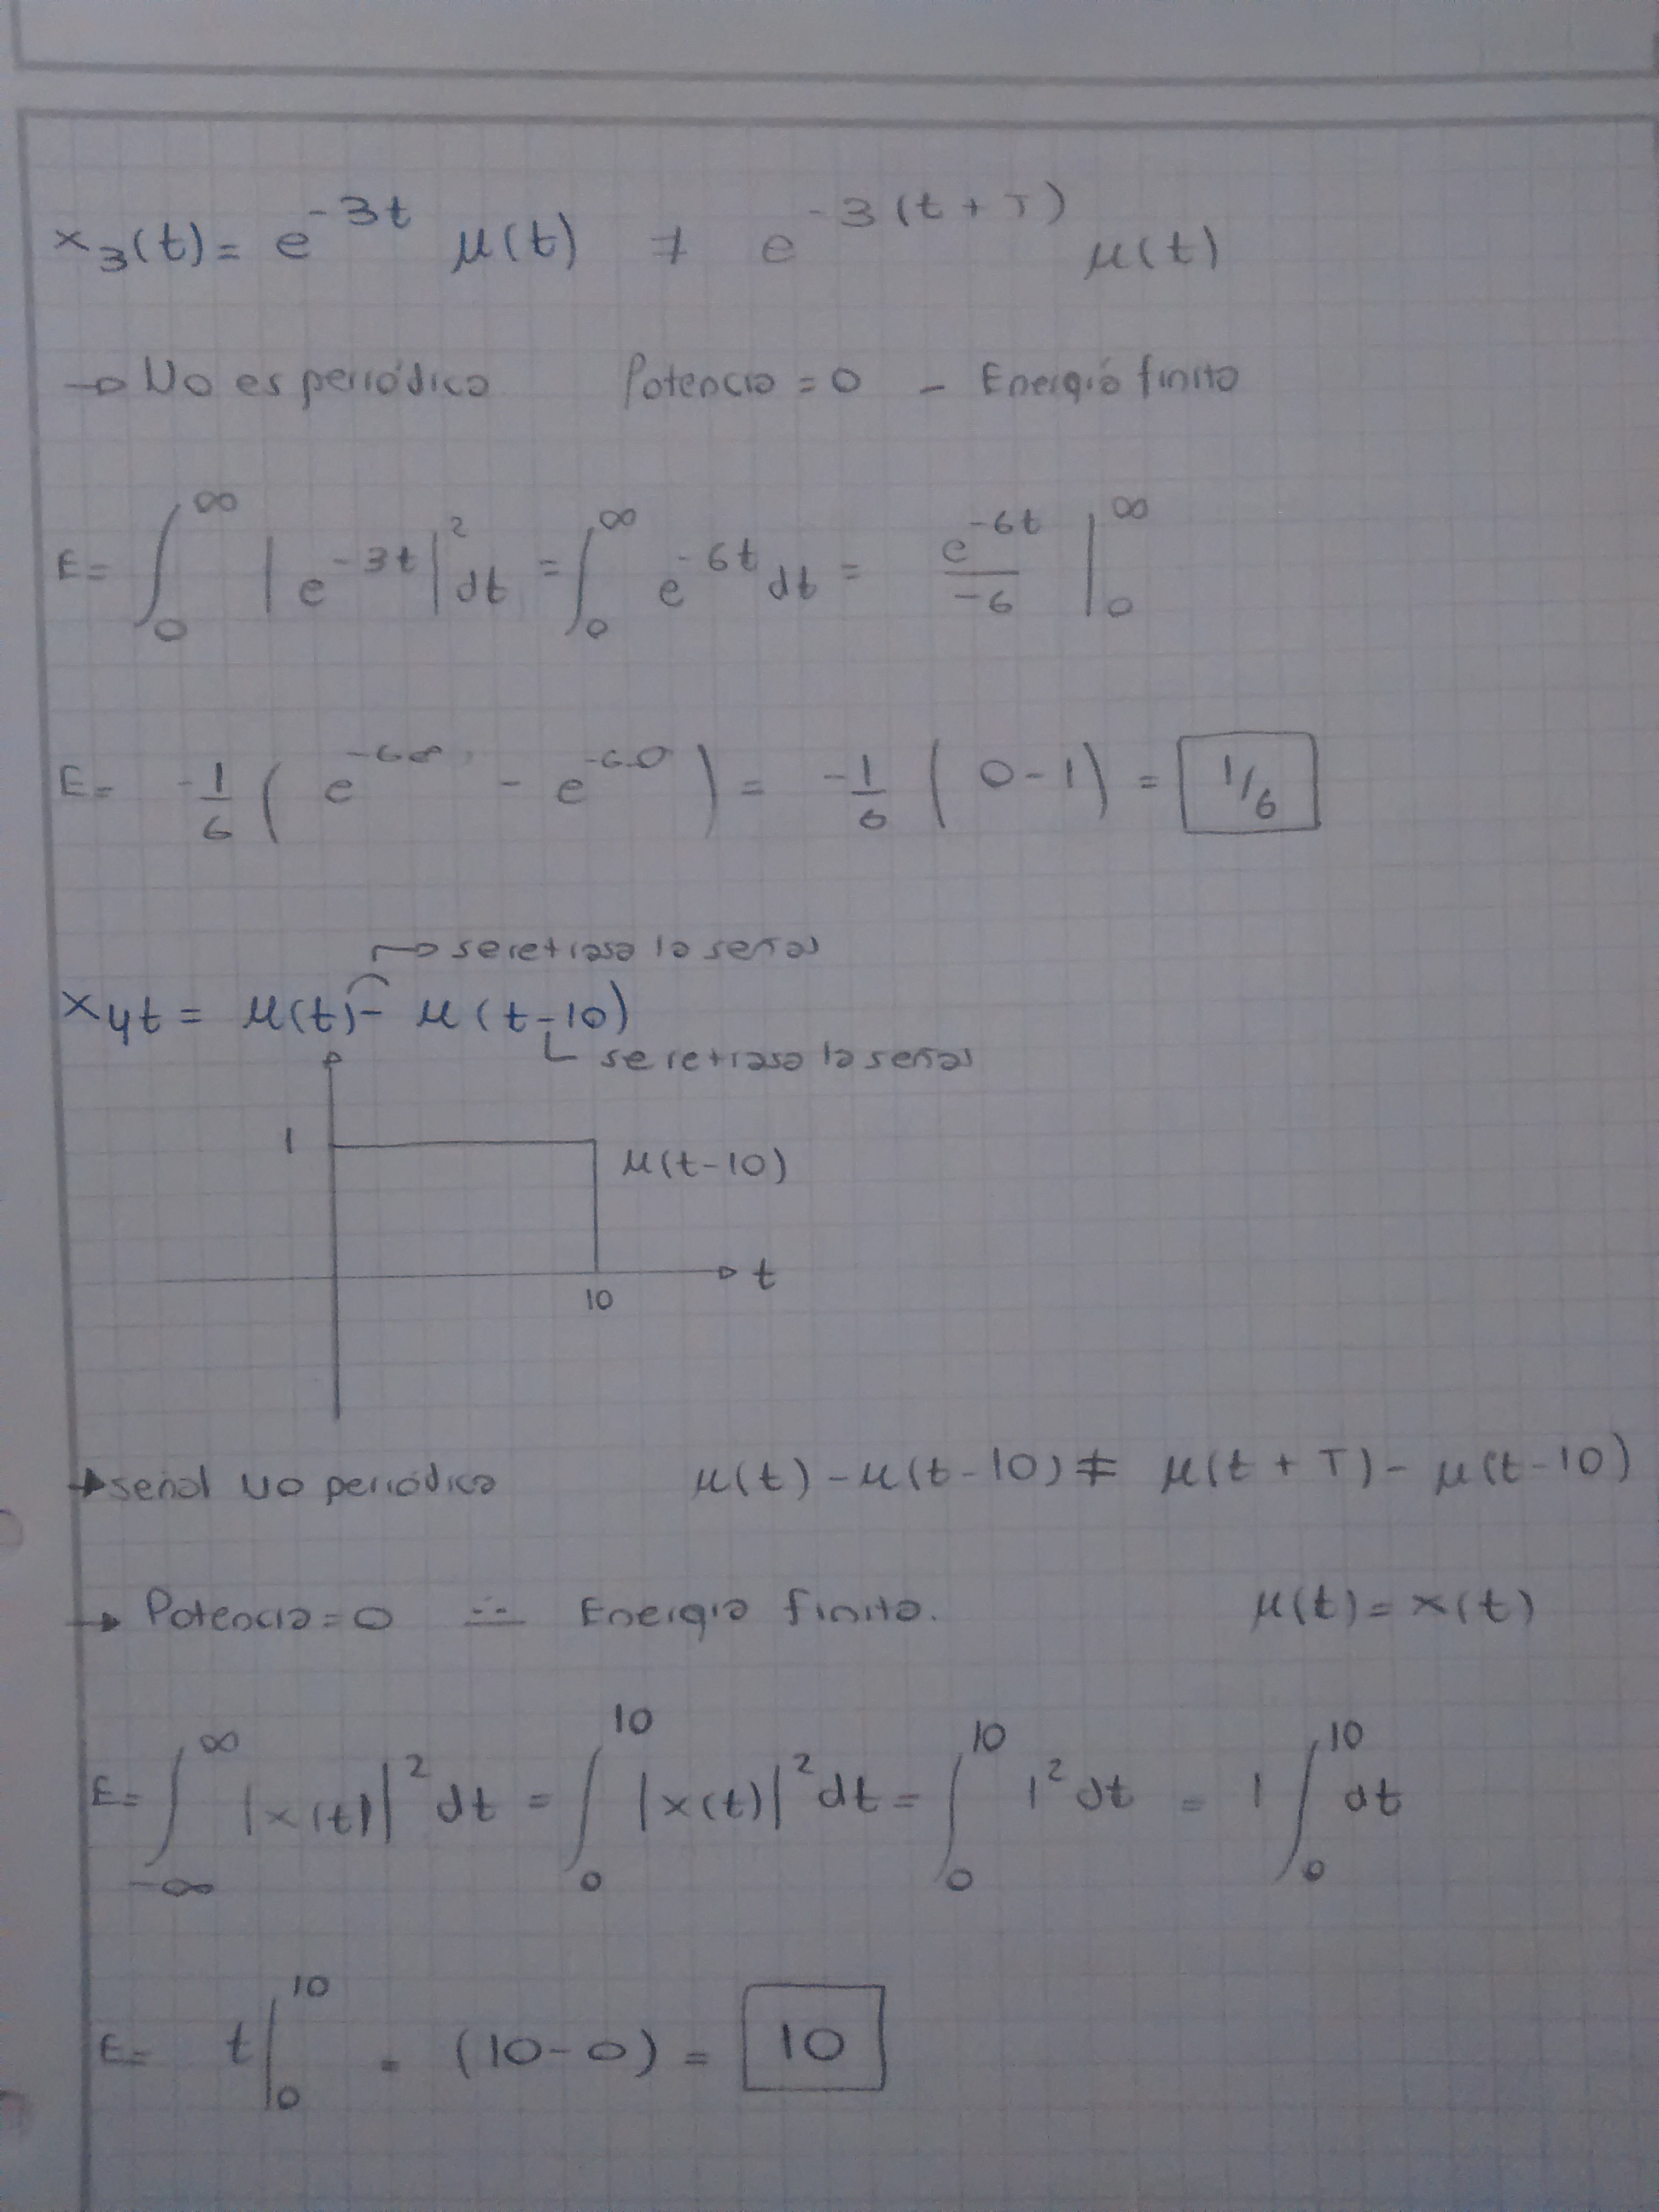 x₃(t) = e^{-3t} μ(t) ≠ e^{-3(t+T)} μ(t)
→ No es periódica Potencia = 0 - Energía finita
E = ∫₀^∞ |e^{-3t}|² dt = ∫₀^∞ e^{-6t} dt = e^{-6t}/-6 |₀^∞
E = -1/6 (e^{-6∞} - e^{-6·0}) = -1/6 (0-1) = 1/6
→ se retrasa la señal
x₄t = μ(t) - μ(t-10)
se retrasa la señal
1
μ(t-10)
t
10
→ señal No periódica μ(t) - μ(t-10) ≠ μ(t+T) - μ(t-10)
→ Potencia = 0 ∴ Energia finita. μ(t) = x(t)
E = ∫_{-∞}^∞ |x(t)|² dt = ∫₀^{10} |x(t)|² dt = ∫₀^{10} 1² dt = 1 ∫₀^{10} dt
E = t |₀^{10} = (10-0) = 10